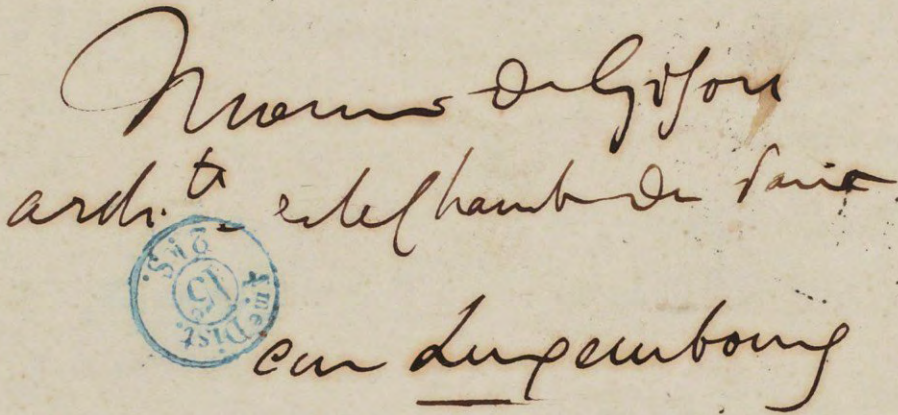 Monsieur de Gisors
archi.te de la Chambre des Pairs
au Luxembourg
4me Dist.
15